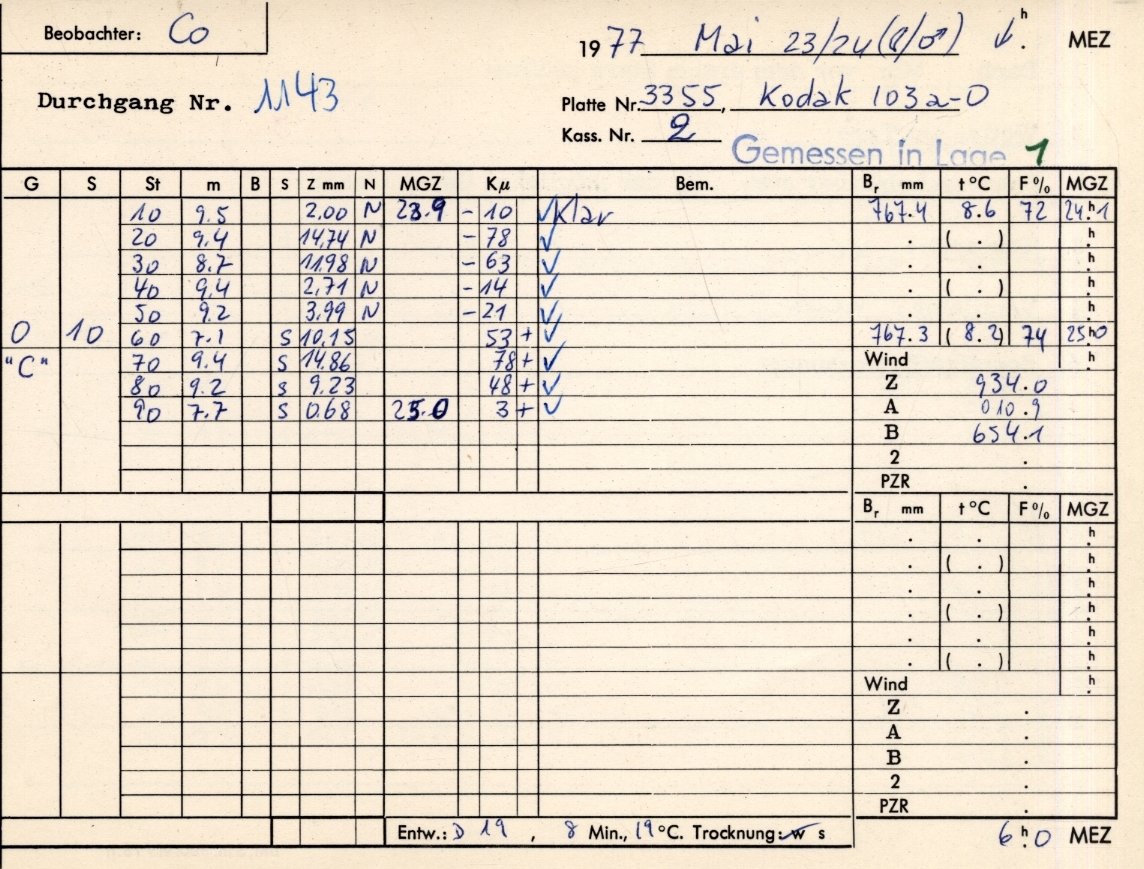 Beobachter: Co
1977 Mai 23/24 (☾/♂) h. MEZ
Durchgang Nr. 1143
Platte Nr. 3355, Kodak 103a-O
Kass. Nr. 2
Gemessen in Lage 1
G S St m B S Z mm N MGZ Kµ Bem. Br mm t°C F% MGZ
10 9.5 2,00 N 23.9 - 10 ✓ Klar 767.4 8.6 72 24h.1
20 9.4 14,74 N - 78 ✓ . ( . ) h.
30 8.7 11,98 N - 63 ✓ . . h.
40 9.4 2,71 N - 14 ✓ . ( . ) h.
50 9.2 3,99 N - 21 ✓ . . h.
0 10 60 7.1 S 10,15 53 + ✓ 767.3 (8.2) 74 25h.0
"C" 70 9.4 S 14,86 78 + ✓ Wind h.
80 9.2 S 9,23 48 + ✓ Z 934.0
90 7.7 S 0,68 25.0 3 + ✓ A 010.9
B 654.1
2 .
PZR .
Br mm t°C F% MGZ
. . h.
. ( . ) h.
. . h.
. ( . ) h.
. . h.
. ( . ) h.
Wind h.
Z .
A .
B .
2 .
PZR .
Entw.: D 19, 8 Min., 19°C. Trocknung: w s
6h.0 MEZ